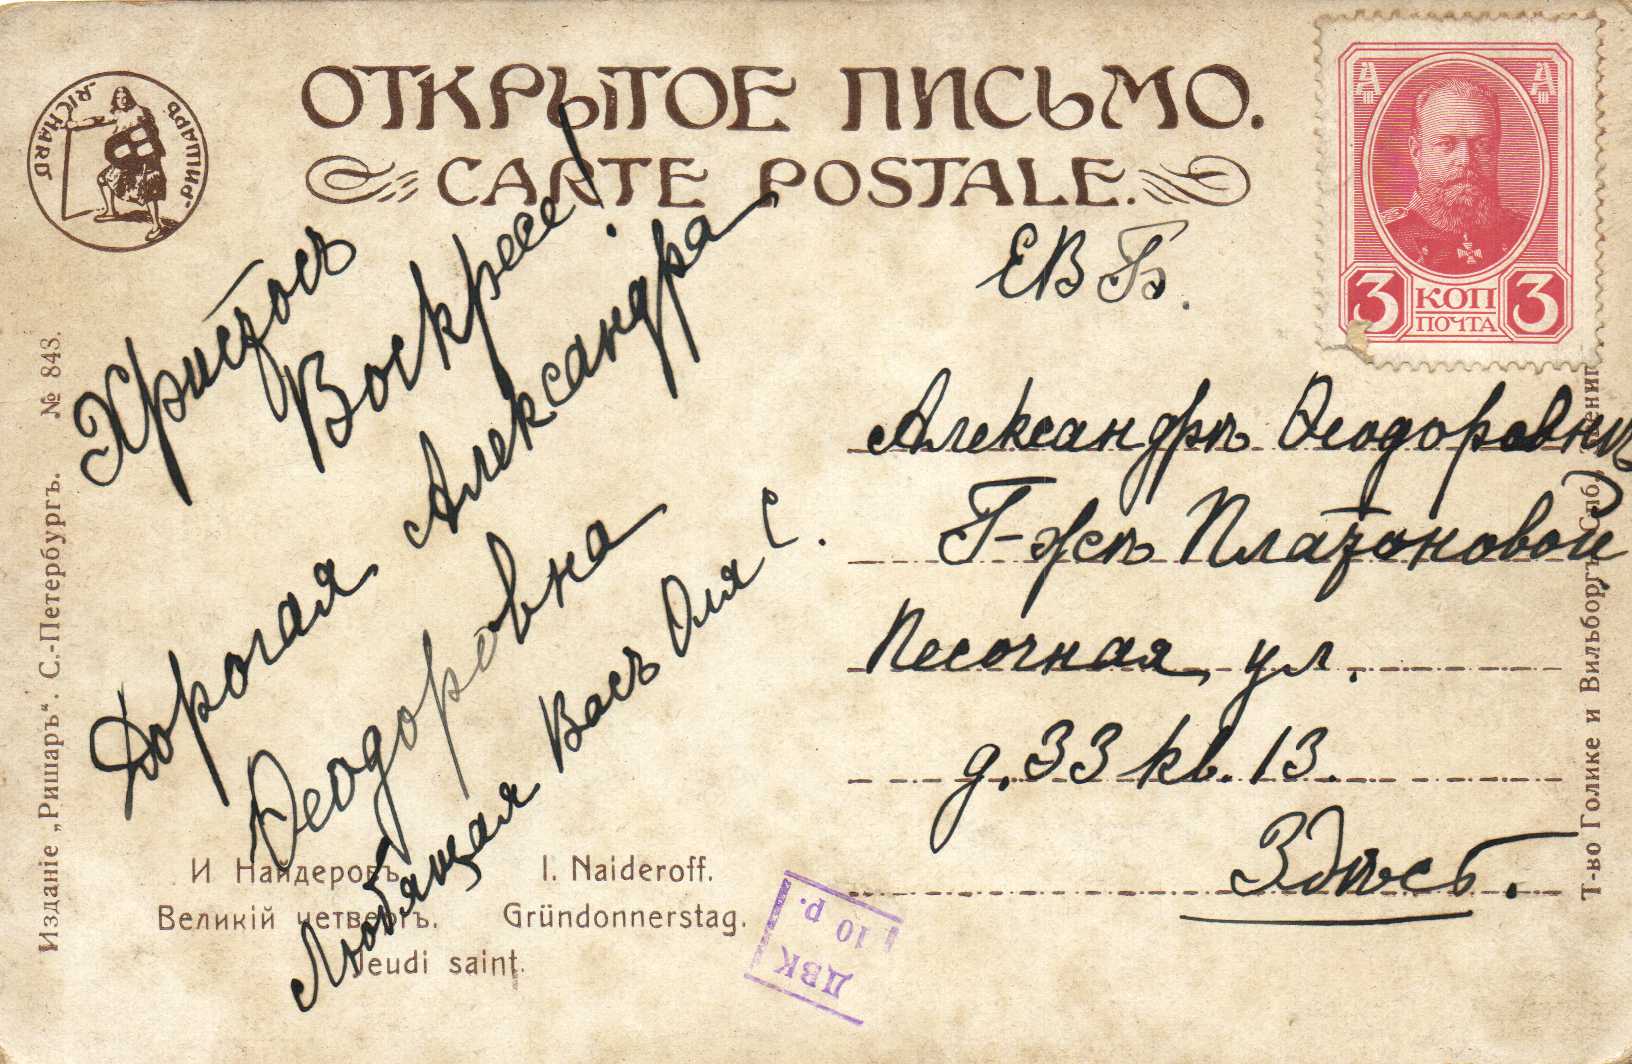 ОТКРЫТОЕ ПИСЬМО.
CARTE POSTALE.
„RICHARD
„РИШАРЪ“
3 КОП 3
ПОЧТА
Христосъ
Воскресе!
Дорогая Александра
Ѳеодоровна
Любящая Васъ Оля С.
Е В Б.
Александрѣ Ѳеодоровнѣ
Г-жѣ Платоновой
Песочная ул.
д. 33 кв. 13.
Здѣсь.
И Найдеровъ.
Великій четвергъ.
I. Naideroff.
Gründonnerstag.
Jeudi saint.
ДВК
10 р.
Изданіе „Ришаръ“. С.-Петербургъ. № 843.
Т-во Голике и Вильборгъ. Спб.,